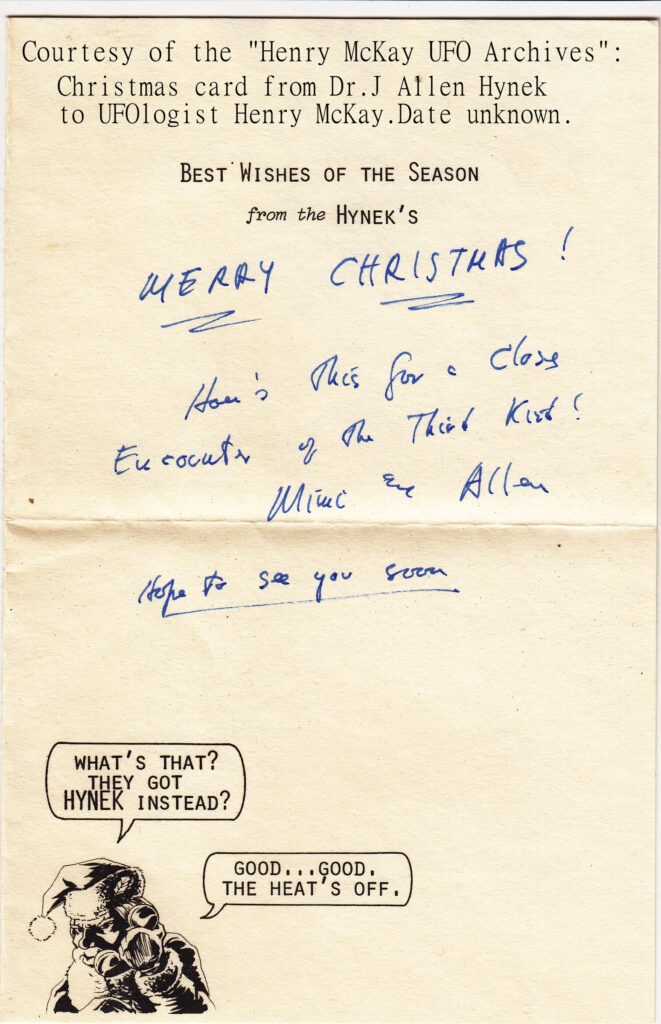 Courtesy of the "Henry McKay UFO Archives":
Christmas card from Dr.J Allen Hynek
to UFOlogist Henry McKay.Date unknown.
BEST WISHES OF THE SEASON
from the HYNEK'S
MERRY CHRISTMAS!
How's this for a Close
Encounter of the Third Kind!
Mimi and Allen
Hope to see you soon
WHAT'S THAT?
THEY GOT
HYNEK INSTEAD?
GOOD...GOOD.
THE HEAT'S OFF.